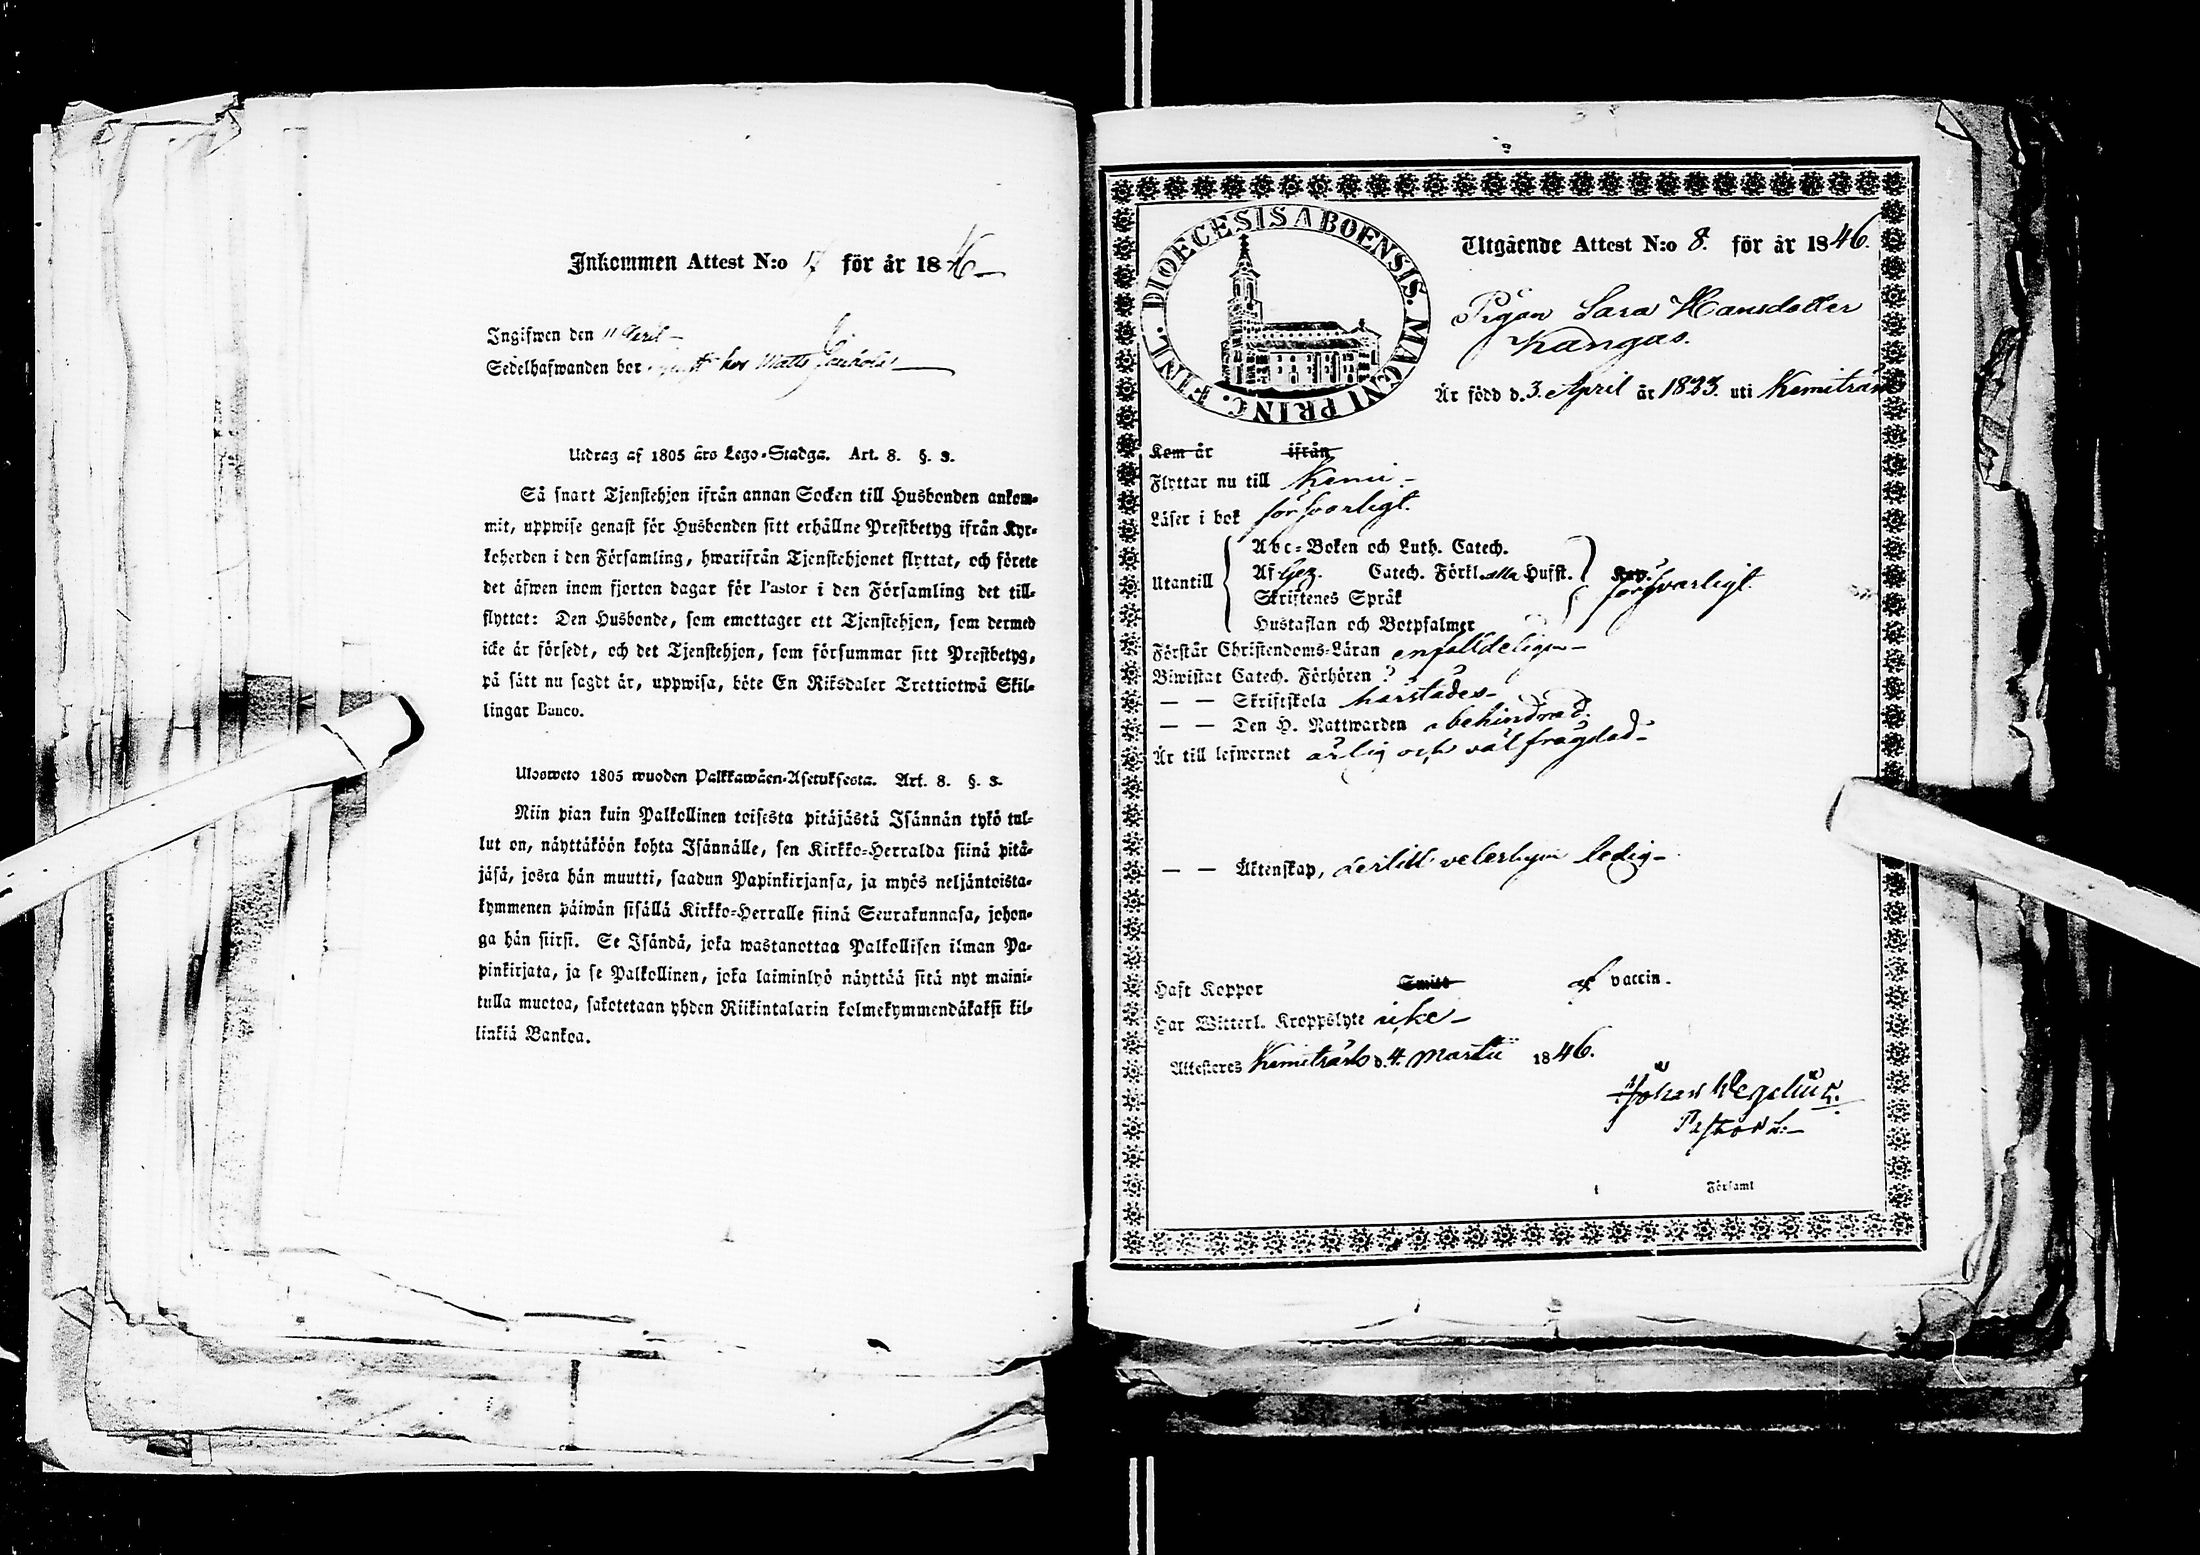 Inkommen Attest N:o 17 för år 1846
Ingifwen den 11 April
Sedelhafwanden bor hos Matts
Utdrag af 1805 års Lego-Stadga. Art. 8. §. 3.
Så snart Tjenstehjon ifrån annan Socken till Husbonden ankom-
mit, uppwise genast för Husbonden sitt erhållne Prestbetyg ifrån Kyr-
koherden i den Församling, hwarifrån Tjenstehjonet flyttat, och förete
det äfwen inom fjorton dagar för Pastor i den Församling det till-
flyttat: Den Husbonde, som emottager ett Tjenstehjon, som dermed
icke är försedt, och det Tjenstehjon, som försummar sitt Prestbetyg,
på sätt nu sagdt är, uppwisa, böte En Riksdaler Trettiotwå Skil-
lingar Banco.
Ulosweto 1805 wuoden Palkkawäen-Asetuksesta. Art. 8. §. 3.
Niin pian kuin Palkollinen toisesta pitäjästä Isännän tykö tul-
lut on, näyttäköön kohta Isännälle, sen Kirkko-Herralda siinä pitä-
jäsä, josta hän muutti, saadun Papinkirjansa, ja myös neljäntoista-
kymmenen päiwän sisällä Kirkko-Herralle siinä Seurakunnasa, johon-
ga hän siirsi. Se Isändä, joka wastanottaa Palkollisen ilman Pa-
pinkirjata, ja se Palkollinen, joka laiminlyö näyttää sitä nyt maini-
tulla muotoa, sakotetaan yhden Riikintalarin kolmekymmendäkaksi kil-
linkiä Bankoa.
FINL. DIOECESIS ABOENSIS. MAGNI PRINC.
Utgående Attest N:o 8. för år 1846.
Pigan Sara Hansdotter
Kangas.
Är född d. 3. April år 1823. uti Kemiträsk
Kom år ifrån
Flyttar nu till Kemi
Läser i bok försvarligt.
Utantill
Abc-Boken och Luth. Catech.
Af Gez. Catech. Förkl. Husst.
Skriftenes Språk
Hustaflan och Botpsalmer
försvarligt.
Förstår Christendoms-Läran enfalldeligen
Biwistat Catech. Förhören
— — Skriftskola härstädes
— — Den H. Nattwarden obehindrad.
Är till lefwernet ärlig och väl frägdad
— — Äktenskap, ledig
Haft Koppor af vaccin.
Har Witterl. Kroppslyte icke
Attesteres Kemiträsk d. 4. Martii 1846.
Johan Wegelius.
Pastor L:
Församl